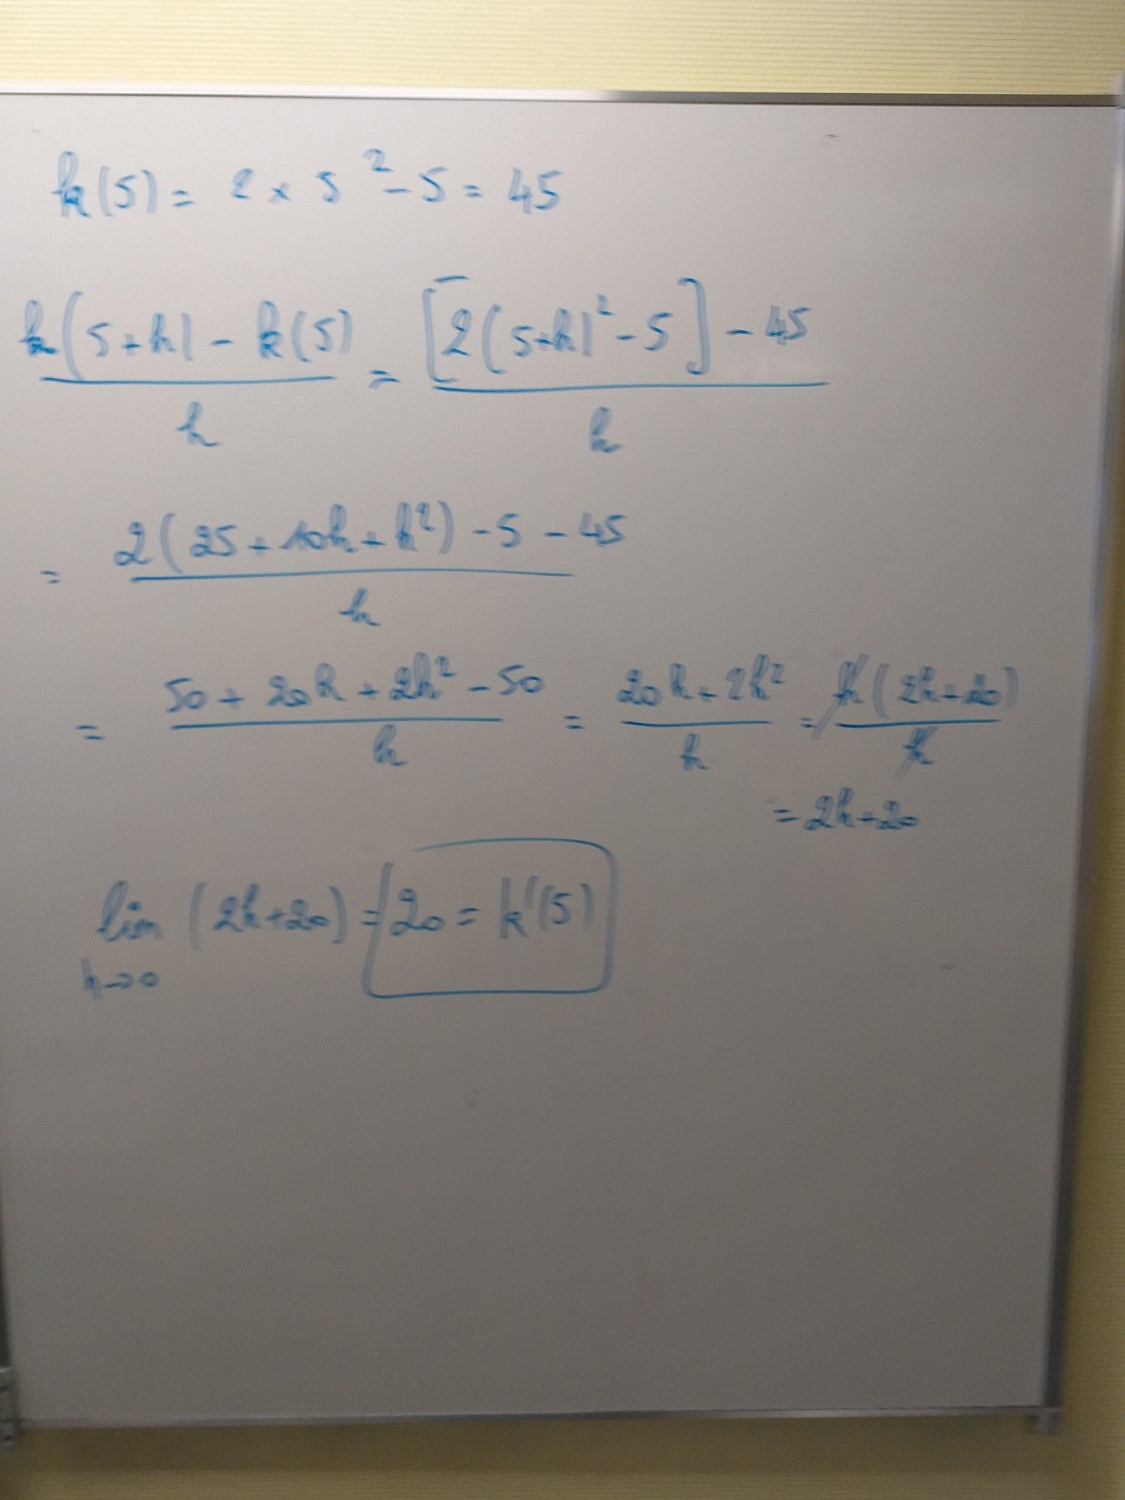 k(5) = 2 × 5² - 5 = 45
k(5+h) - k(5) / h = [2(5+h)² - 5] - 45 / h
= 2(25 + 10h + h²) - 5 - 45 / h
= 50 + 20h + 2h² - 50 / h = 20h + 2h² / h = h(2h+20) / h
= 2h+20
lim h→0 (2h+20) = 20 = k'(5)